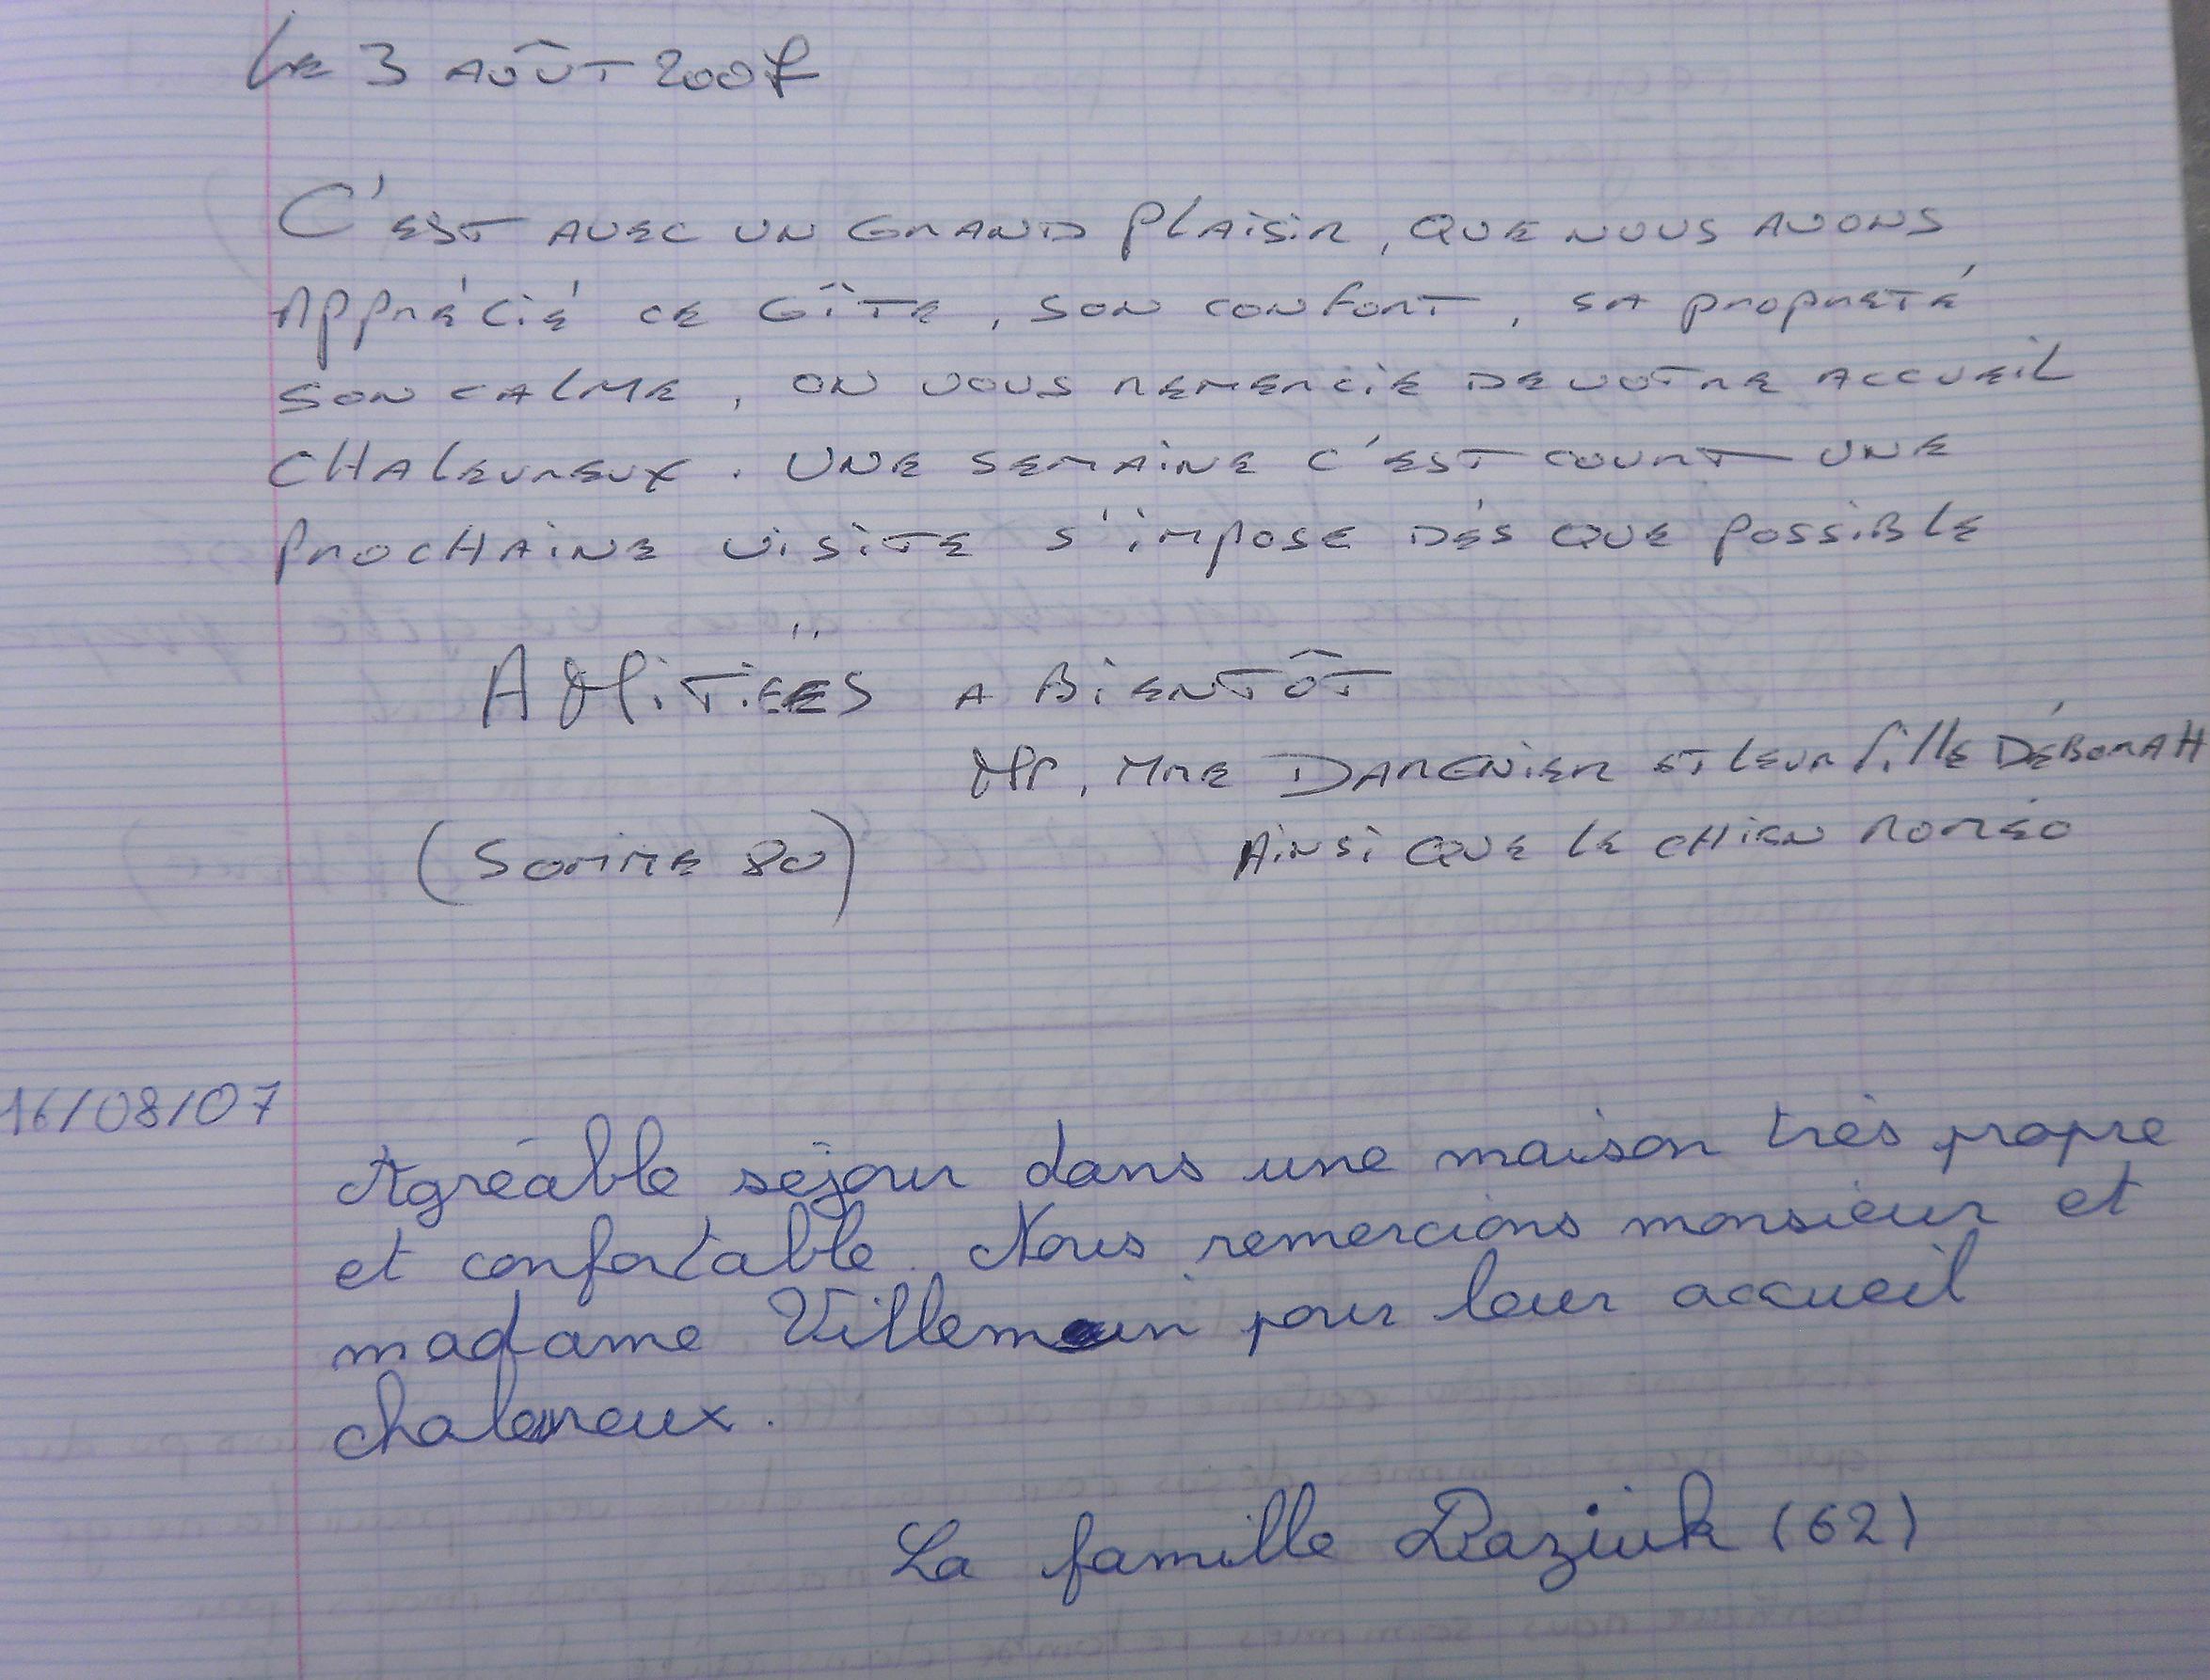 Le 3 AOÛT 2007
C'EST AVEC UN GRAND PLAISIR, QUE NOUS AVONS
APPRÉCIÉ CE GÎTE, SON CONFORT, SA PROPRETÉ
SON CALME, ON VOUS REMERCIE DE VOTRE ACCUEIL
CHALEUREUX. UNE SEMAINE C'EST COURT UNE
PROCHAINE VISITE S'IMPOSE DÉS QUE POSSIBLE
AMITIÉES A BIENTÔT
Mr, MME DARGNIER ET LEUR fille DÉBORAH
(SOMME 80) AINSI QUE LE CHIEN ROMÉO
16/08/07
Agréable séjour dans une maison très propre
et confortable. Nous remercions monsieur et
madame Villemin pour leur accueil
chaleureux.
La famille Daziuk (62)